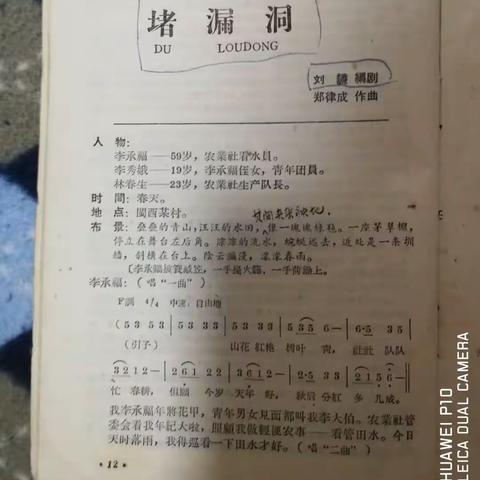 堵漏洞
DU LOUDONG
刘 編剧
郑律成 作曲
人 物:
李承福——59岁,农業社看水員。
李秀娥——19岁,李承福侄女,青年团員。
林春生——23岁,农業社生产队長。
时 間:春天。
地 点:閩西某村。
布 景:叠叠的青山,汪汪的水田,像一塊塊綠毯。一座茅草棚,
停立在舞台左后角。潺潺的流水,蜿蜒远去,近处是一条圳
墙,斜横在台上。陰云瀰漫,濛濛春雨。
〔李承福披簑戴笠,一手提火籠,一手荷鋤上。
李承福:(唱“一曲”)
F調 4/4 中速、自由地
(53 53 | 53 33 53 | 53 33 53 | 5 35 6— | 6·5 35 |
(引子) 山花 紅艳 樹叶 青, 社社 队队
3212— | 2 61 22 | 3 612— | 5 35 33 | 2156—‖
忙 春耕, 但願 今岁 天年 好, 秋后 分紅 多 几成。
我李承福年將花甲,青年男女見面都叫我李大伯。农業社管
委会看我年記大啦,照顧我做輕便农事——看管田水。今日
天时落雨,我得巡看一下田水才好。(唱“二曲”)
·12·
HUAWEI P10
LEICA DUAL CAMERA